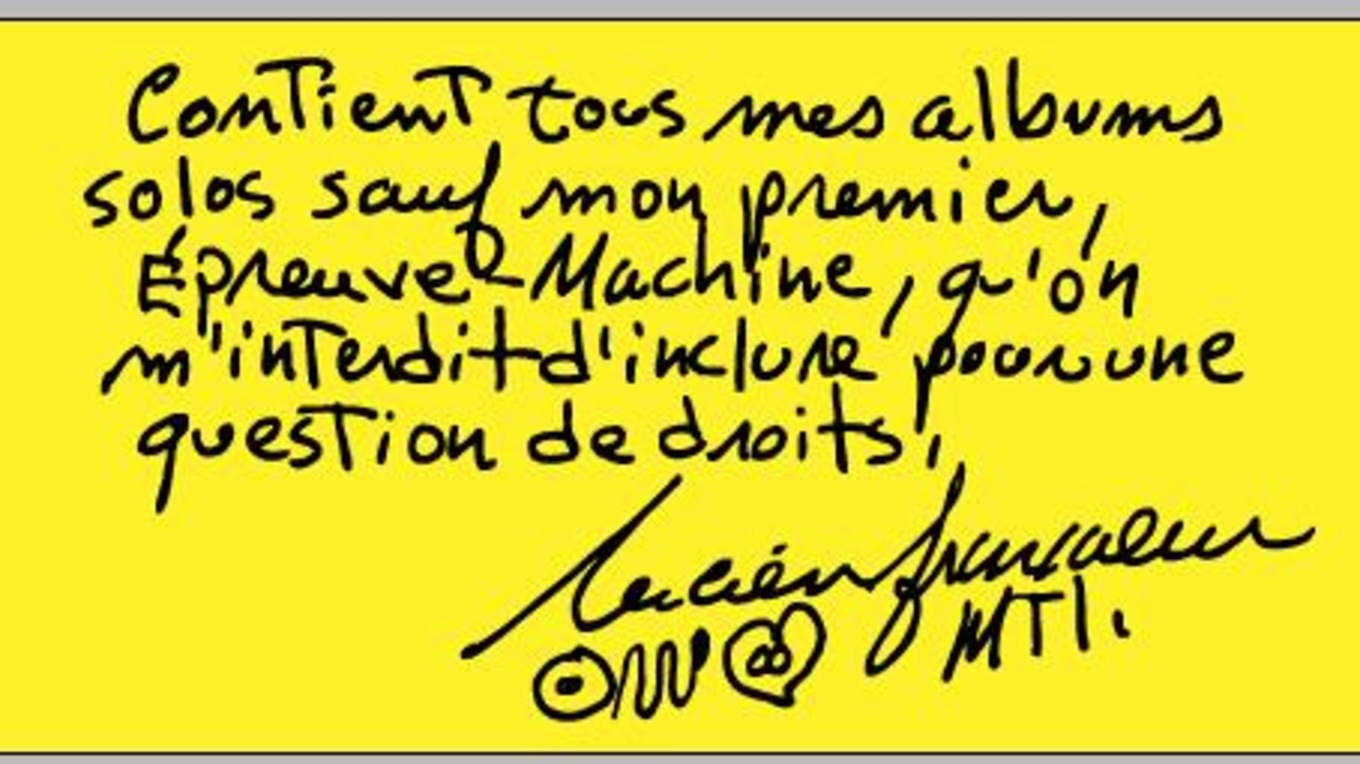 Contient tous mes albums
solos sauf mon premier,
Épreuve Machine, qu'on
m'interdit d'inclure pour une
question de droits,
Lucien Francoeur
MTl.